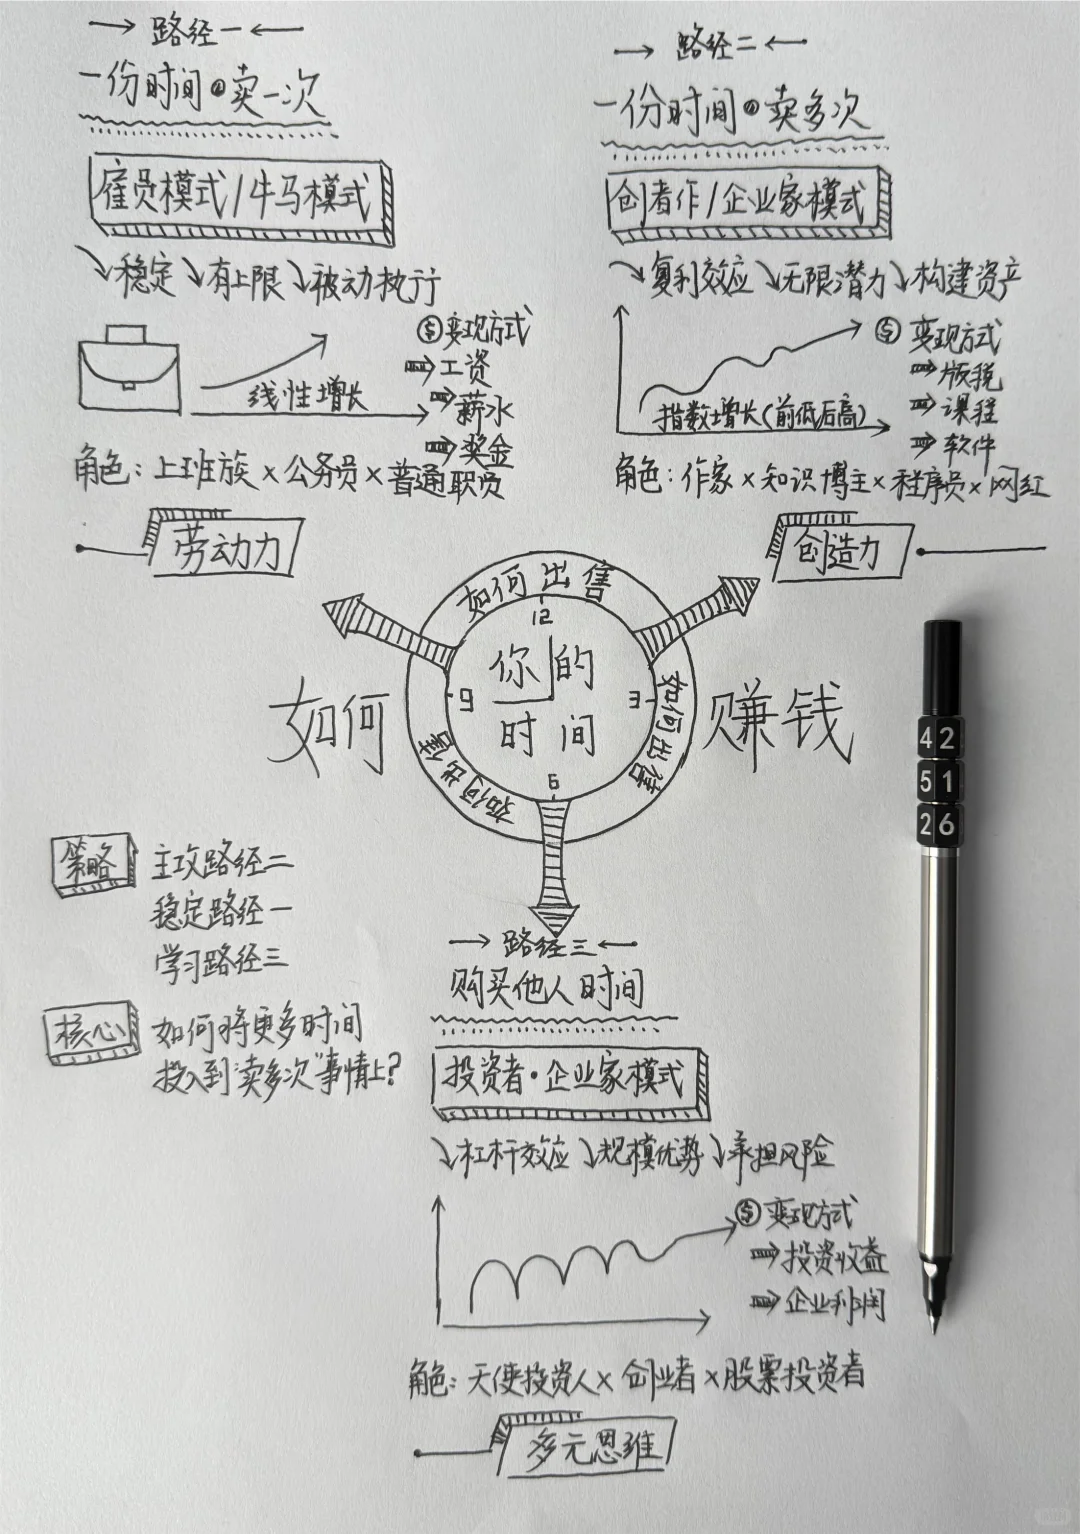 路径一
一份时间卖一次
雇员模式/牛马模式
稳定 有上限 被动执行
$变现方式
工资
薪水
奖金
线性增长
角色：上班族×公务员×普通职员
劳动力
路径二
一份时间卖多次
创者作/企业家模式
复利效应 无限潜力 构建资产
$变现方式
版税
课程
软件
指数增长(前低后高)
角色：作家×知识博主×程序员×网红
创造力
如何出售
如何出售
如何出售
12
3
6
9
你的
时间
如何 赚钱
策略
主攻路径二
稳定路径一
学习路径三
核心
如何将更多时间
投入到"卖多次"事情上?
路径三
购买他人时间
投资者·企业家模式
杠杆效应 规模优势 承担风险
$变现方式
投资收益
企业利润
角色：天使投资人×创业者×股票投资者
多元思维
42
51
26